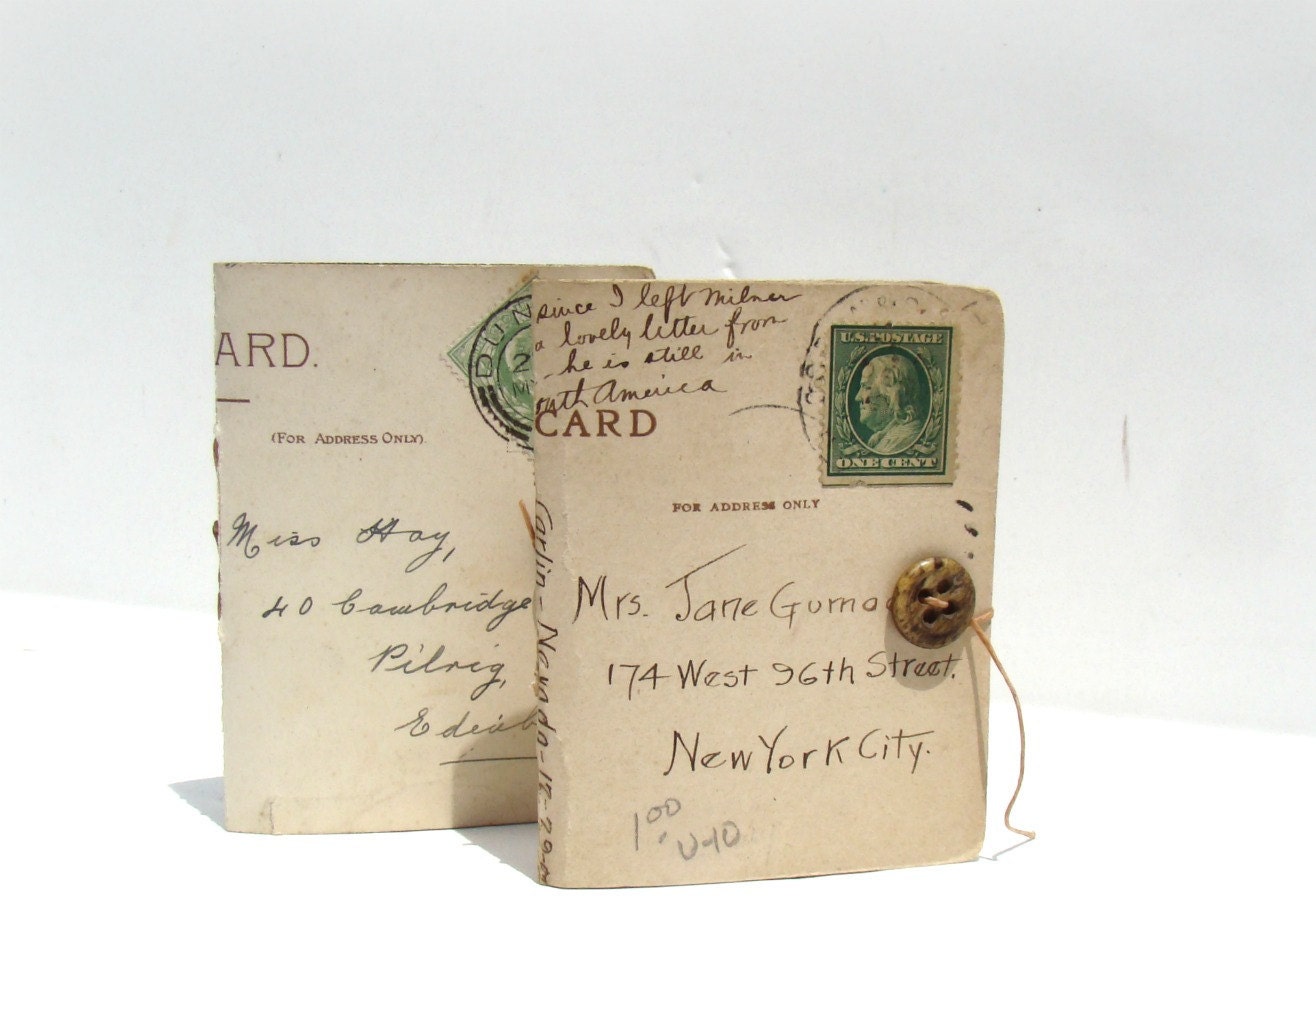 ARD.
(FOR ADDRESS ONLY).
DUN
2
Miss Hay,
40 Cambridge
Pilrig,
Edinb
since I left Milner
a lovely letter from
he is still in
outh America
CARD
U.S. POSTAGE
ONE CENT
FOR ADDRESS ONLY
Mrs. Jane Gurna
174 West 96th Street.
New York City.
1.00
Carlin - Nevada -